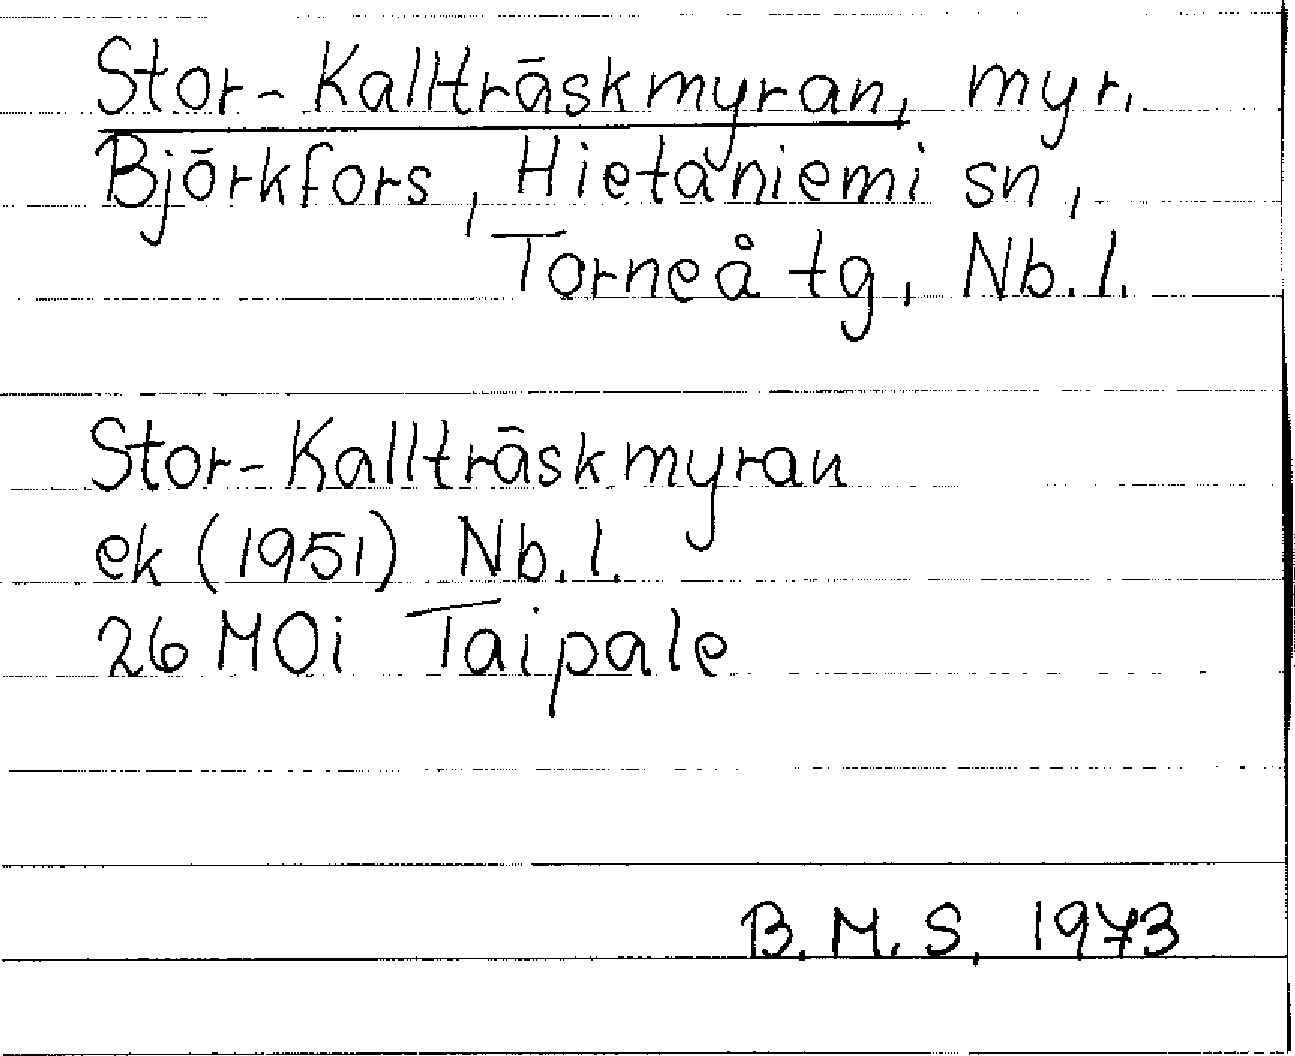 Stor-Kallträskmyran, myr.
Björkfors, Hietaniemi sn,
Torneå tg, Nb.l.
Stor-Kallträskmyran
ek (1951) Nb.l.
26 MOi Taipale
B.M.S, 1973